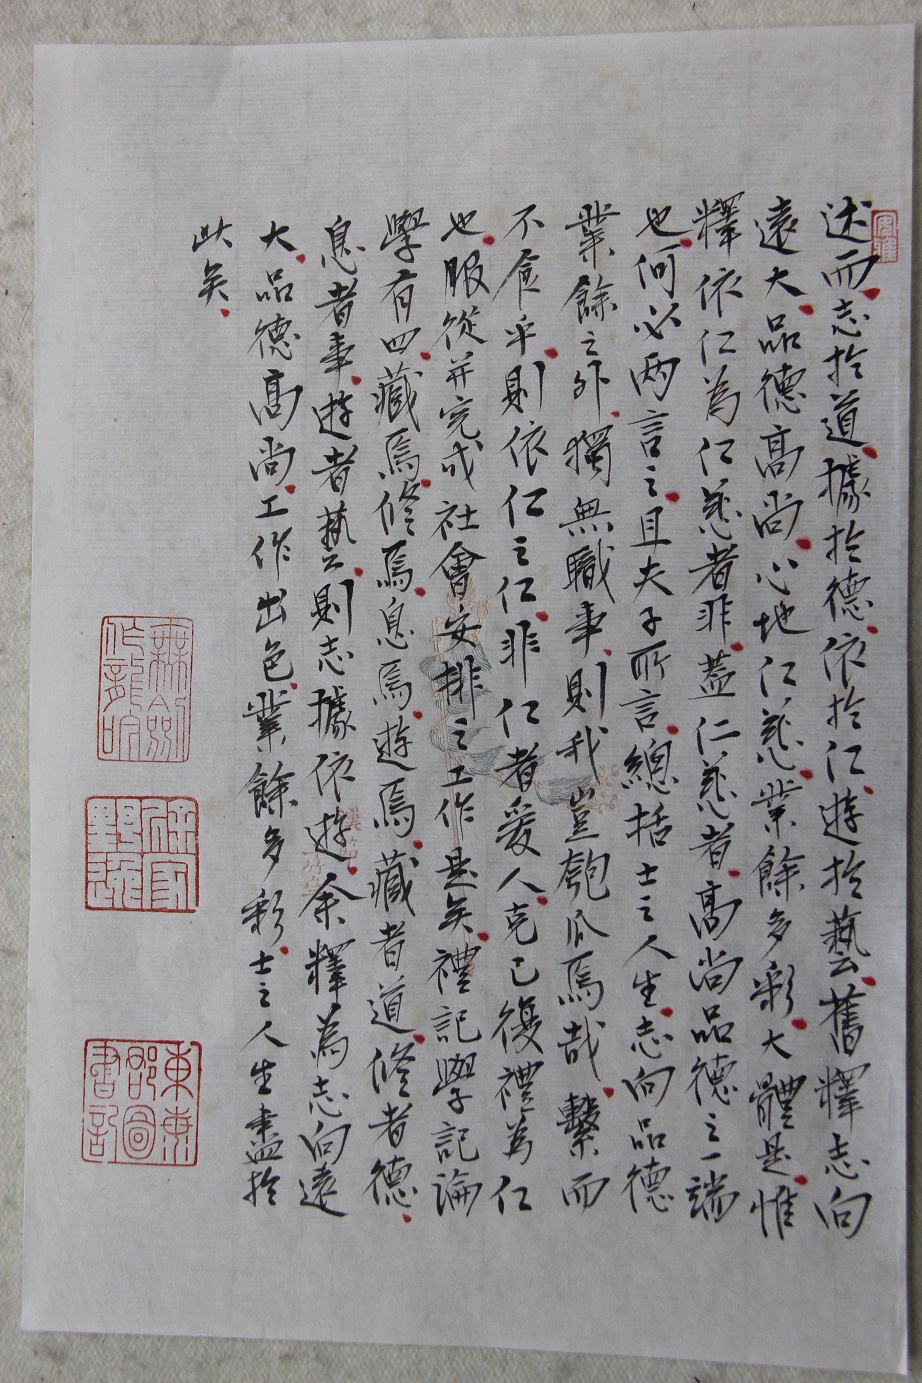 述而志於道據於德依於仁遊於藝舊釋志向
遠大品德高尚心地仁慈業餘多彩大體是惟
釋依仁為仁慈者非蓋仁慈者高尚品德之一端
也何必兩言之且夫子所言總括士之人生志向品德
業餘之外獨無職事則我豈匏瓜焉哉繫而
不食乎則依仁之仁非仁者愛人克己復禮為仁
也服從并完成社會安排之工作是矣禮記學記論
學有四藏焉修焉息焉遊焉藏者道修者德
息者事遊者藝則志據依遊余釋為志向遠
大品德高尚工作出色業餘多彩士之人生盡於
此矣